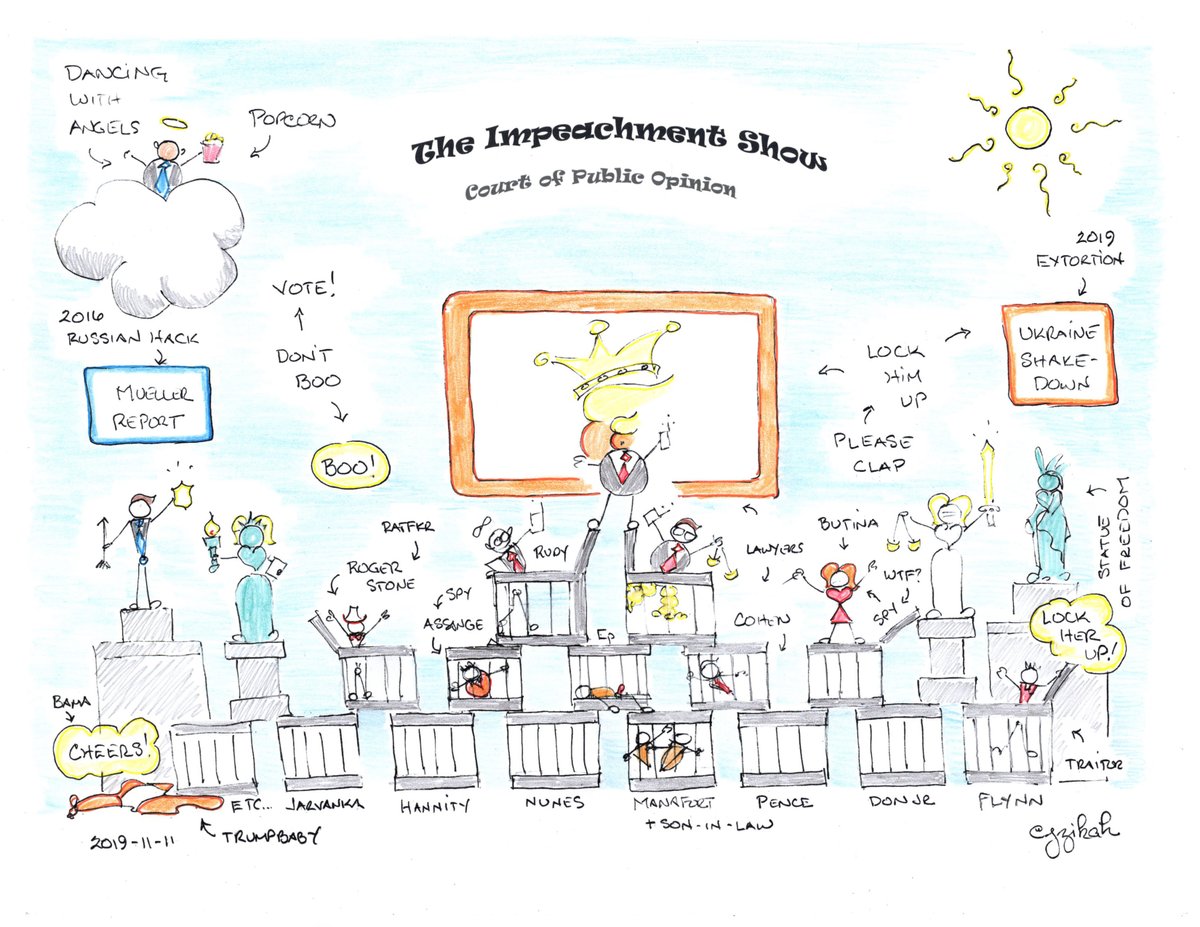 The Impeachment Show
Court of Public Opinion
DANCING
WITH
ANGELS
POPCORN
2016
RUSSIAN HACK
MUELLER
REPORT
VOTE!
DON'T
BOO
BOO!
2019
EXTORTION
UKRAINE
SHAKE-
DOWN
LOCK
HIM
UP
PLEASE
CLAP
STATUE
OF FREEDOM
RATFKR
ROGER
STONE
SPY
ASSANGE
RUDY
EP
LAWYERS
COHEN
BUTINA
WTF?
SPY
LOCK
HER
UP!
TRAITOR
BAMA
CHEERS!
ETC...
JARVANKA
HANNITY
NUNES
MANAFORT
+ SON-IN-LAW
PENCE
DON JR
FLYNN
TRUMPBABY
2019-11-11
cyzikah